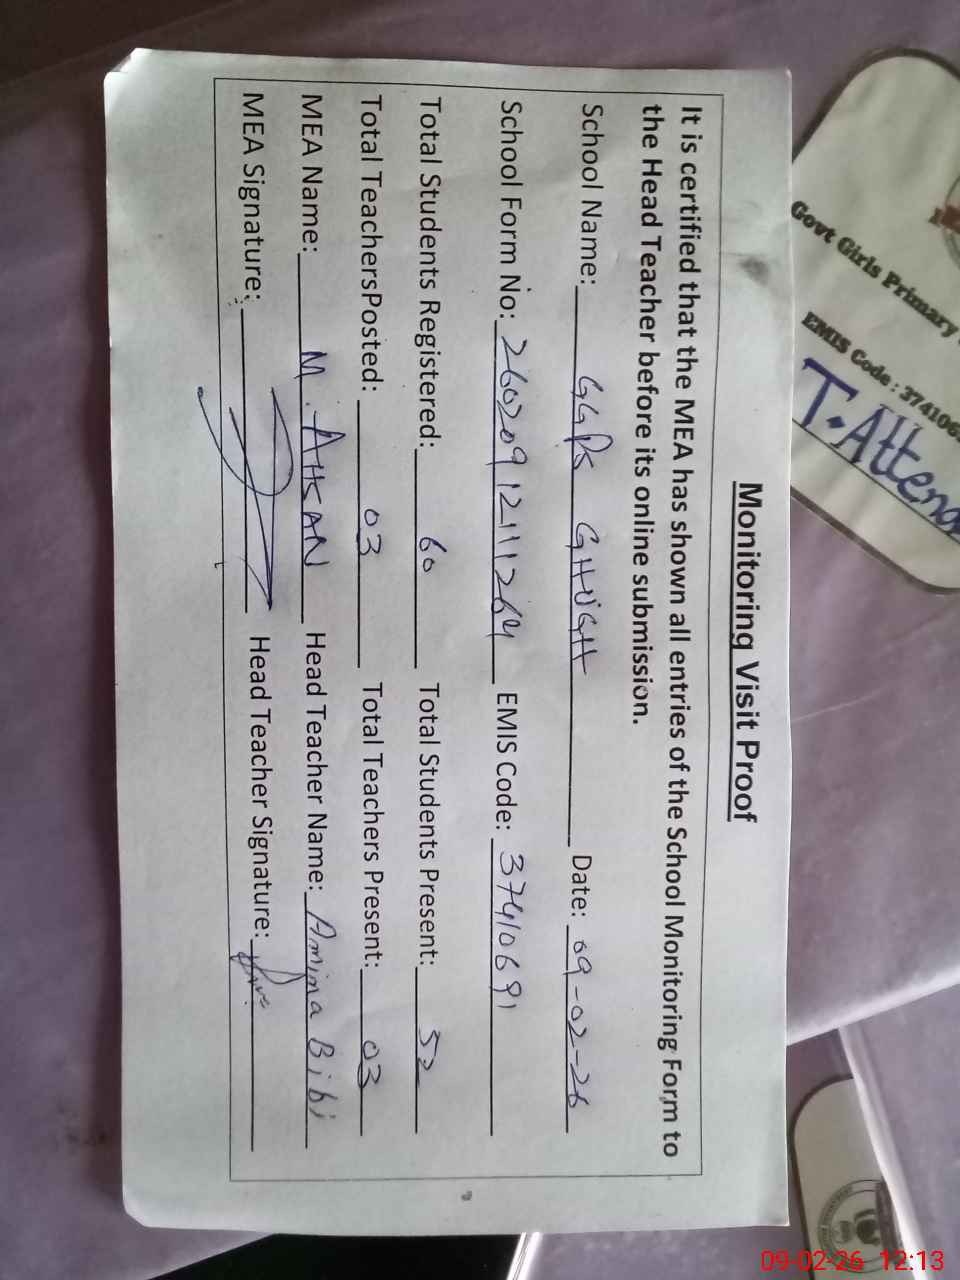 Monitoring Visit Proof
It is certified that the MEA has shown all entries of the School Monitoring Form to
the Head Teacher before its online submission.
School Name: GGPS GHUGH Date: 09-02-26
School Form No: 260209121111264 EMIS Code: 37410691
Total Students Registered: 60 Total Students Present: 52
Total TeachersPosted: 03 Total Teachers Present: 03
MEA Name: M. AHSAN Head Teacher Name: Amina Bibi
MEA Signature: Head Teacher Signature:
Govt Girls Primary
EMIS Code : 374106
T. Atten
09-02-26 12:13